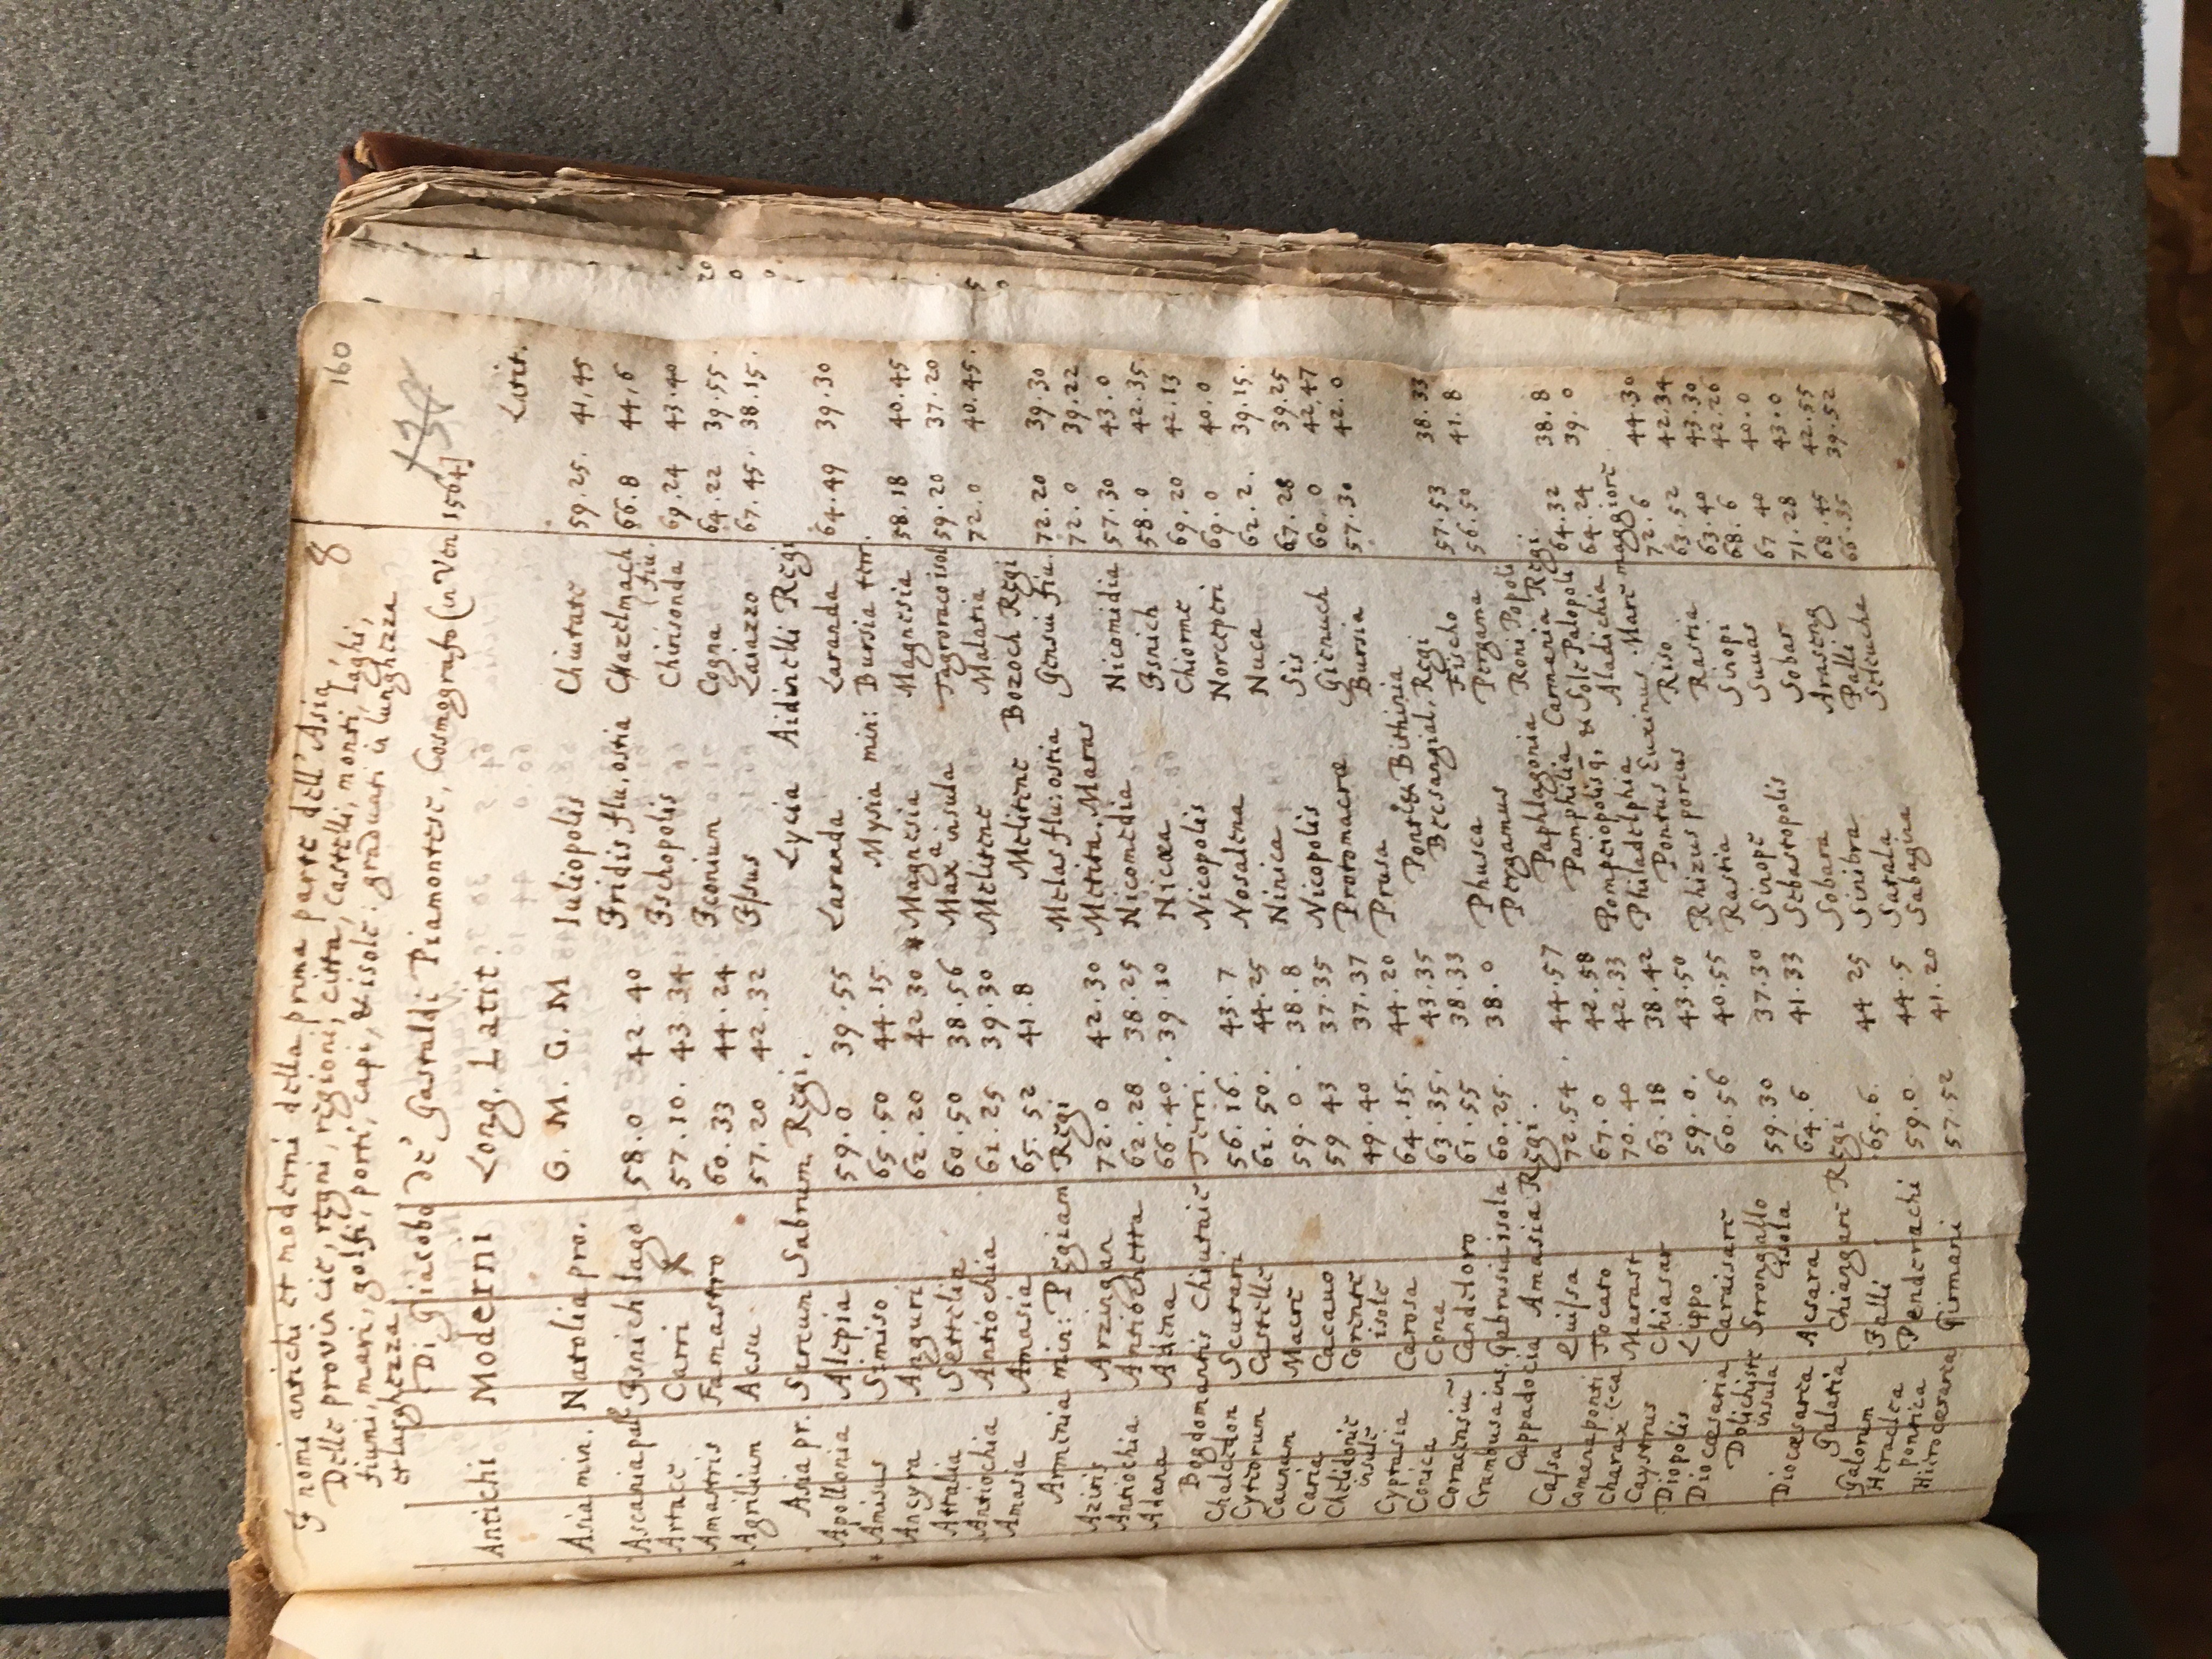 160
8
I nomi antichi et moderni della prima parte dell' Asia,
Delle provincie, regni, regioni, citta, castelli, monti, laghi,
fiumi, mari, golfi, porti, capi, & isole: graduati in lunghezza
et larghezza
Di Giacobo de' Gastaldi Piamontese, Cosmografo (in Ven 1564]
Antichi Moderni Long. Latit. Latit.
G. M. G. M
Asia min. Natolia pro. Iuliopolis Chiutare 59.25. 41,45
Ascania pal Isnich lago 58.0 42.40 Iridis flu, ostia Chazelmach (fiu. 66.8 44,6
Artace Carri 57.10. 43.34 Ischopolis Chirisonda 69.24 43.40
Amastris Famastro 60.33 44.24 Iconium Cogna 64.22 39.55.
Agrilium Acsu 57.20 42.32 Issus Laiazzo 67.45. 38.15.
Asia pr. Surcum Sabrum, Regi. Lycia Aidinelli Regi
Apollonia Alepia 59.0 39.55 Laranda Laranda 64.49 39.30
Amisus Simiso 65.50 44.15. Mysia min: Bursia terr.
Ancyra Anguri 62.20 42.30 Magnesia Magnesia 58.18 40.45
Attalia Settelia 60.50 38.56 Max a insula Tagroraco isol 59.20 37.20
Antiochia Antiochia 61.25 39.30 Melitene Malatia 72.0 40.45.
Amasia Amasia 65.52 41.8 Melitene Bozoch Regi
Armenia min: Pegiam Regi Melas flu: ostia Gensui fiu. 72.20 39.30
Aziris Arzingan 72.0 42.30 Metita. Maras 72.0 39.22
Antiochia Antiochetta 62.28 38.25 Nicomedia Nicomidia 57.30 43.0
Adana Adena 66.40. 39.10 Nicæa Isnich 58.0 42.35.
Bogdomantis Chiutaie Terri. Nicopolis Chiorme 69.20 42.13
Chalcedon Scutari 56.16. 43.7 Nosalena Norcepiri 69.0 40.0
Cytiorum Castelle 61.50. 44.25 Ninica Nuca 62.2. 39.15.
Caunum Macre 59.0. 38.8 Nicopolis Sis 67.28 39.25
Caria Cacauo 59 43 37.35 Protomacræ Gienuch 60.0 42,47
Chelidonie insule Corente isole 49.40 37.37 Prusa Bursia 57.30 42.0
Cyptasia Carosa 64.15. 44.20 Ponti & Bithinia
Conica Cona 63.35. 43.35 Becsangial, Regi
Coracinsiū Candeloro 61.55 38.33 Phusca Fischo 57.53 38.33
Crambusa in, Gabrusia isola 60.25. 38.0 Pergamus Pergama 56.50 41.8
Cappadocia Amasia Regi. Paphlagonia Roni Popoli
Calsa Luissa 72.54. 44.57 Pamphilia Carmenia Regi
Comanaponti (-ca Tocato 67.0 42.58 Pompeiopolis q, & Sole Palopoli 64.32 38.8
Charax Marast 70.40 42.33 Philadelphia Aladichia 64.24 39.0
Caystrus Chiasar 63.18 38.42 Pontus Euxinus: Mare maggiore
Diopolis Lippo 59.0. 43.50 Rhizus portus Riso 72.6 44.30
Diocæsaria Caraisare 60.56 40.55 Rastia Rastia 63.52 42.34
Dolichiste insula Strongallo isola 59.30 37.30 Sinope Sinopi 63.40 43.30
Diocæsaria Acsara 64.6 41.33 Sebastopolis Suuas 68.6 42.26
Galatia Chiangare Regi Sobara Sobar 67 40 40.0
Galorum Falli 65.6. 44 25 Sinibra Araseng 71.28 43.0
Heraclea pontica Penderachi 59.0 44.5 Satala Palli 68.45 42.55
Hierocæsaria Girmasti 57.52 41.20 Sabagina Seleuche 66.35 39.52